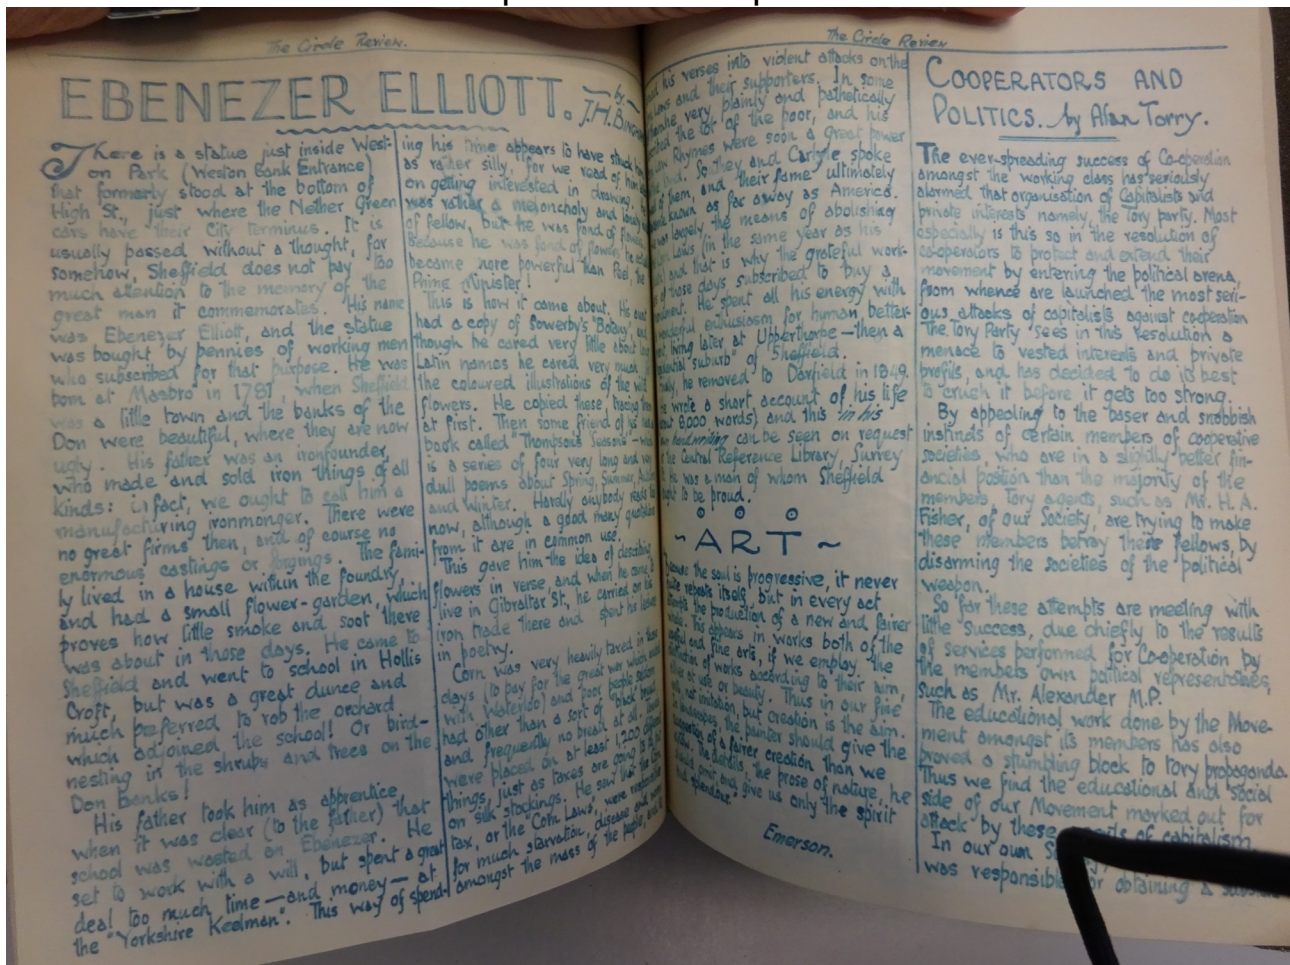 The Circle Review.
EBENEZER ELLIOTT.
by
J.H. Bing
There is a statue just inside West-
on Park (Weston Bank Entrance)
that formerly stood at the bottom of
High St., just where the Nether Green
cars have their City terminus. It is
usually passed without a thought, for
somehow, Sheffield does not pay too
much attention to the memory of the
great man it commemorates. His name
was Ebenezer Elliott, and the statue
was bought by pennies of working men
who subscribed for that purpose. He was
born at Masbro' in 1781, when Sheffield
was a little town and the banks of the
Don were beautiful, where they are now
ugly. His father was an ironfounder,
who made and sold iron things of all
kinds: in fact, we ought to call him a
manufacturing ironmonger. There were
no great firms then, and of course no
enormous castings or forgings. The fami-
ly lived in a house within the foundry,
and had a small flower-garden, which
proves how little smoke and soot there
was about in those days. He came to
Sheffield and went to school in Hollis
Croft, but was a great dunce and
much preferred to rob the orchard
which adjoined the school! Or bird-
nesting in the shrubs and trees on the
Don banks!
His father took him as apprentice,
when it was clear (to the father) that
school was wasted on Ebenezer. He
set to work with a will, but spent a great
deal too much time — and money — at
the "Yorkshire Keelman". This way of spend-
ing his time appears to have struck him
as rather silly, for we read of him
on getting interested in drawing.
was rather a melancholy and lonely
of fellow, but he was fond of flowers.
Because he was fond of flowers, he
became more powerful than Peel, the
Prime Minister!
This is how it came about. His aunt
had a copy of Sowerby's "Botany", and
though he cared very little about
Latin names he cared very much
the coloured illustrations of the wild
flowers. He copied these, tracing them
at first. Then some friend of his
book called "Thompsons Seasons" — 
is a series of four very long and very
dull poems about Spring, Summer, Autumn
and Winter. Hardly anybody reads
now, although a good many quotations
from it are in common use.
This gave him the idea of describing
flowers in verse and when he came to
live in Gibraltar St., he carried on his
iron trade there and spent his leisure
in poetry.
Corn was very heavily taxed in those
days (to pay for the great war which
with Waterloo) and poor people seldom
had other than a sort of "black" bread
and frequently no bread at all.
were placed on at least 1,200 different
things, just as taxes are going to be
on silk stockings. He saw that the
tax, or the "Corn Laws", were responsible
for much starvation, disease and
amongst the mass of the people, and
The Circle Review
his verses into violent attacks on the
and their supporters. In some
very plainly and pathetically
the lot of the poor, and his
Rhymes were soon a great power
Southey and Carlyle spoke
of them, and their fame ultimately
known as far away as America.
was largely the means of abolishing
Laws (in the same year as his
and that is why the grateful work-
of those days subscribed to buy a
He spent all his energy with
enthusiasm for human better-
living later at Upperthorpe — then a
suburb" of Sheffield.
he removed to Darfield in 1849.
wrote a short account of his life
8,000 words) and this in his
handwriting can be seen on request
the Central Reference Library, Surrey
He was a man of whom Sheffield
ought to be proud.
~ ART ~
Because the soul is progressive, it never
repeats itself, but in every act
the production of a new and fairer
This appears in works both of the
useful and fine arts, if we employ the
of works according to their aim,
use or beauty. Thus in our fine
not imitation, but creation is the aim.
In landscapes, the painter should give the
suggestion of a fairer creation than we
know. The details, the prose of nature, he
should omit and give us only the spirit
and splendour.
Emerson.
COOPERATORS AND
POLITICS. by Alan Torry.
The ever-spreading success of Co-operation
amongst the working class has seriously
alarmed that organisation of Capitalists and
private interests namely, the Tory party. Most
especially is this so in the resolution of
co-operators to protect and extend their
movement by entering the political arena,
from whence are launched the most seri-
ous attacks of capitalists against cooperation
The Tory Party sees in this resolution a
menace to vested interests and private
profits, and has decided to do its best
to crush it before it gets too strong.
By appealing to the baser and snobbish
instincts of certain members of cooperative
societies who are in a slightly better fin-
ancial position than the majority of the
members, Tory agents, such as Mr. H. A.
Fisher, of our Society, are trying to make
these members betray their fellows, by
disarming the societies of the political
weapon.
So far these attempts are meeting with
little success, due chiefly to the results
of services performed for Co-operation by
the members own political representatives,
such as Mr. Alexander M.P.
The educational work done by the Move-
ment amongst its members has also
proved a stumbling block to tory propaganda.
Thus we find the educational and social
side of our Movement marked out for
attack by these of capitalism.
In our own
was responsible for obtaining a